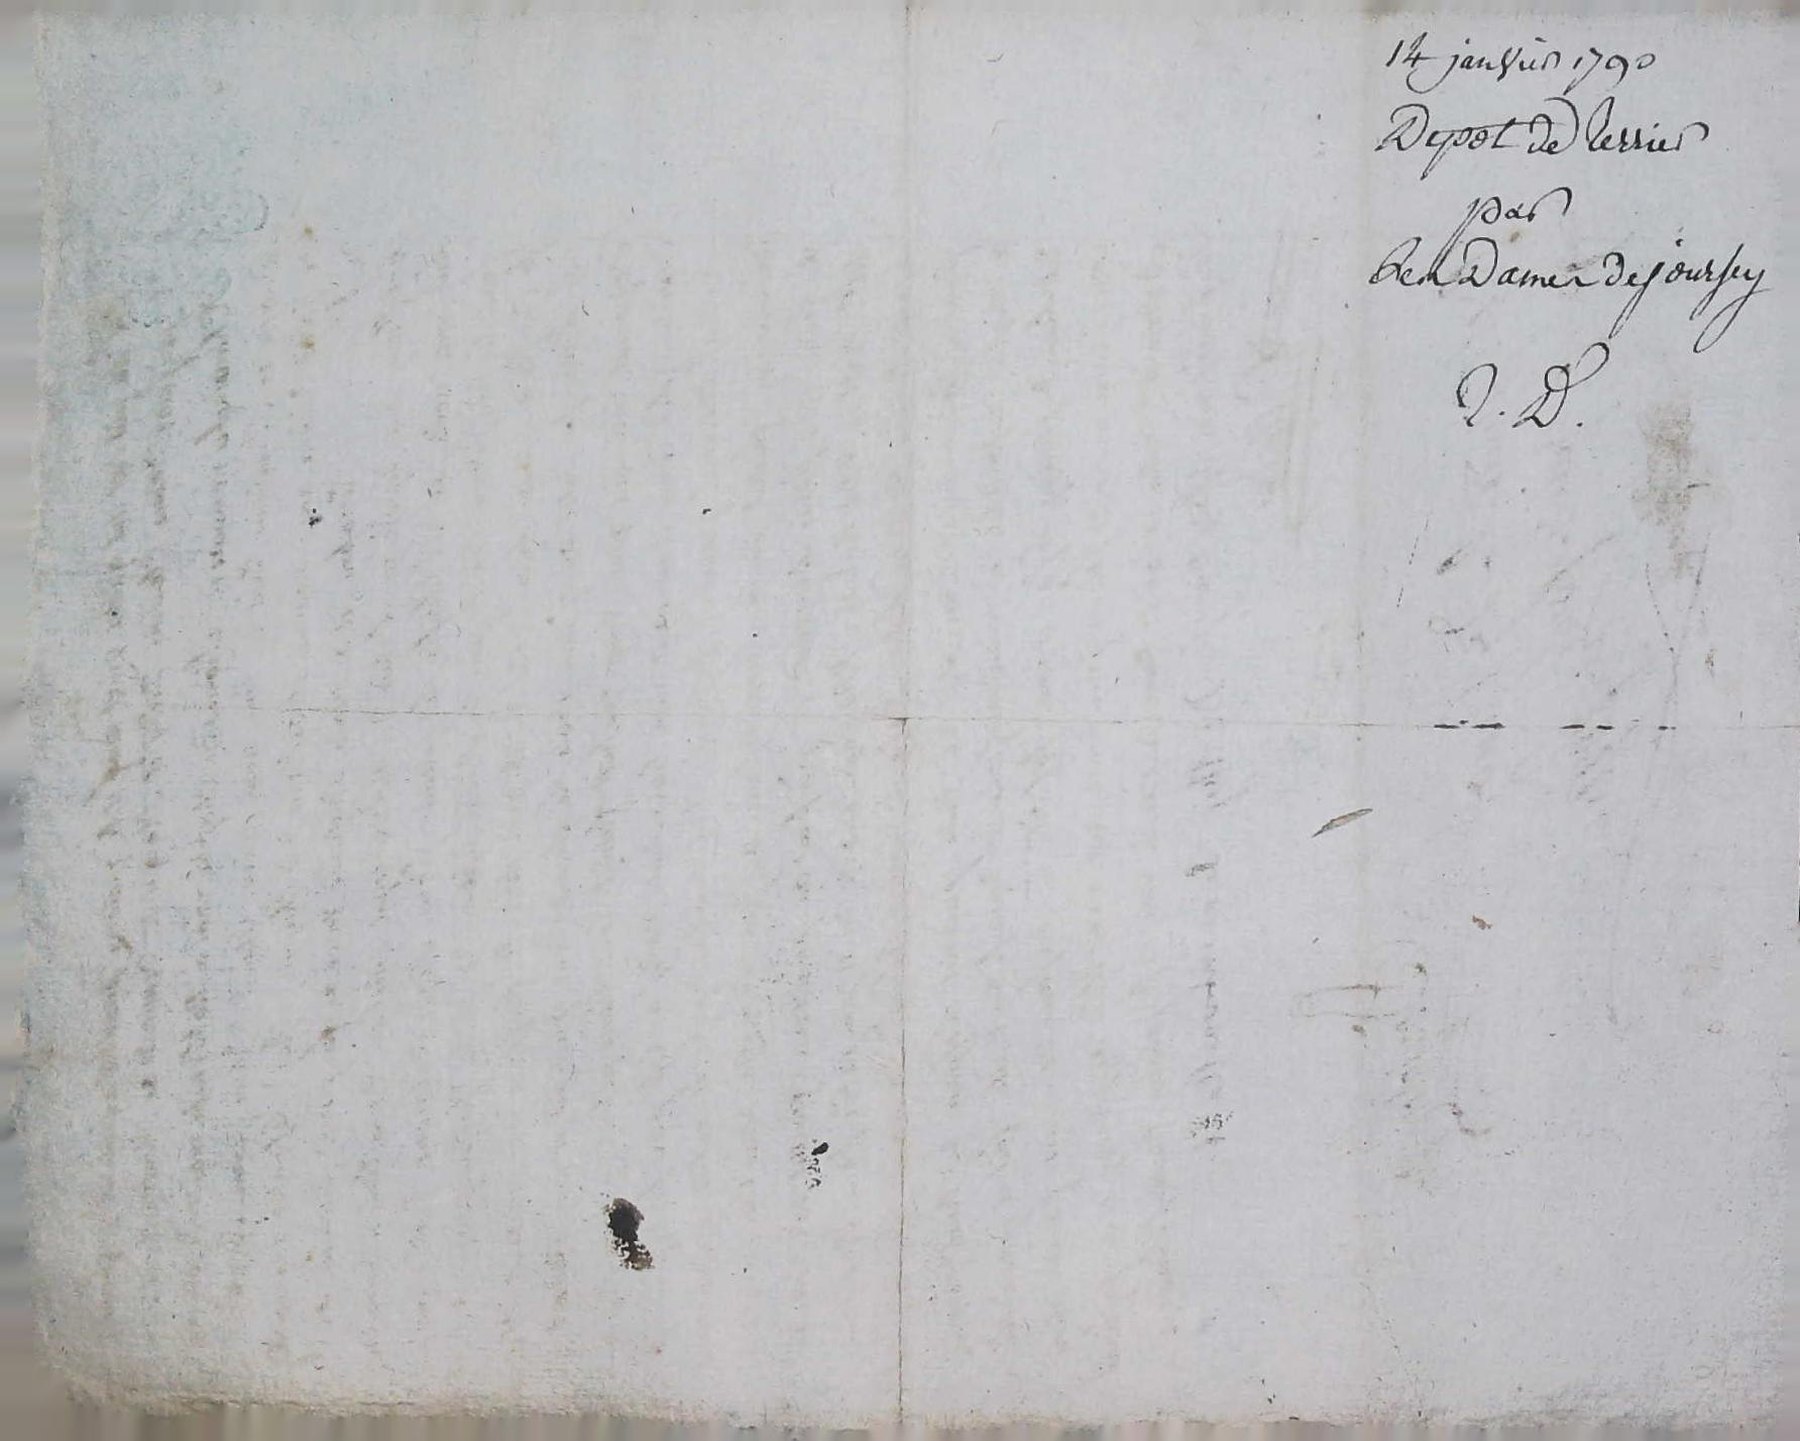 14 janvier 1790
Depot de terrier
par
les Dames de joursey
2. D.